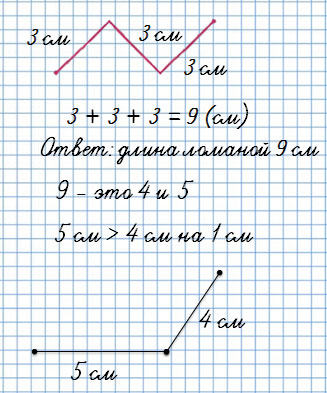 3 см
3 см
3 см
3 + 3 + 3 = 9 (см)
Ответ: длина ломаной 9 см
9 - это 4 и 5
5 см > 4 см на 1 см
4 см
5 см